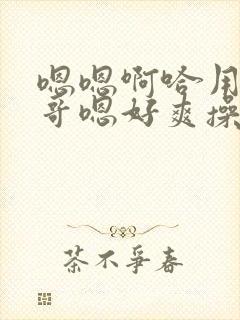 嗯嗯啊哈用
哥嗯好爽操
茶不爭春